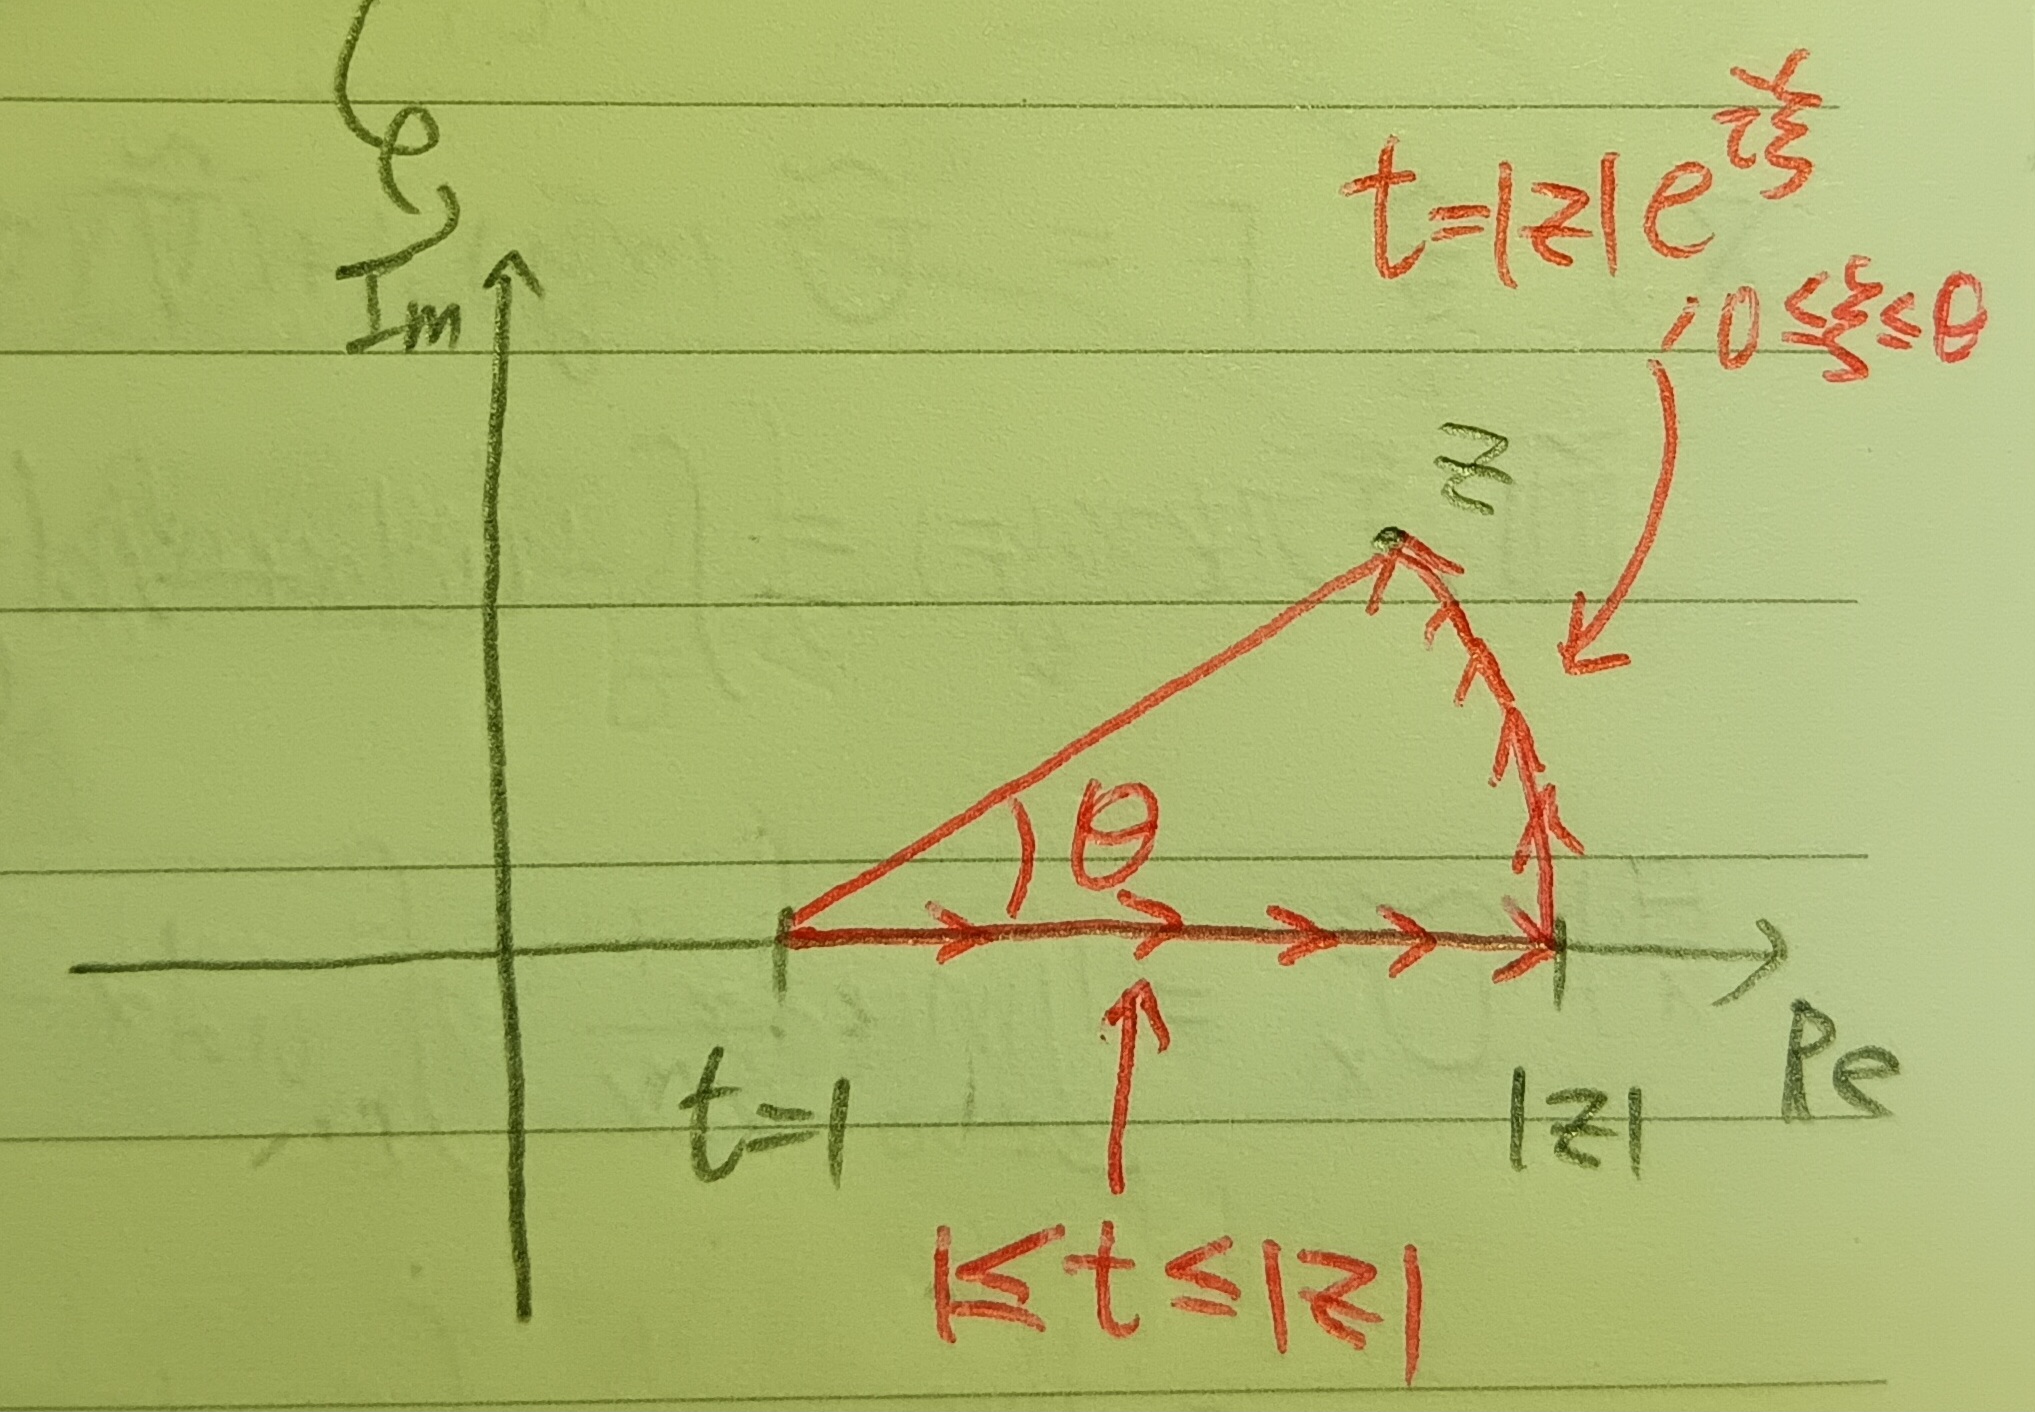 t=|z|e^{iξ}
, 0≤ξ≤θ
Im
z
θ
t=1
|z|
Re
1≤t≤|z|